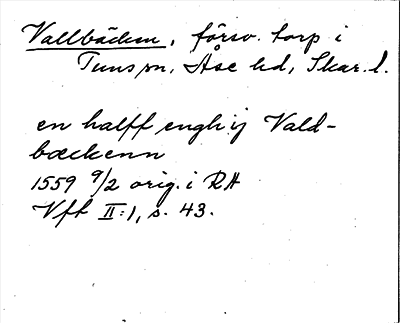 Vallbäcken, försv. torp i
Tuns sn, Åse hd, Skar. l.
en halff engh ij Vald-
bæckenn
1559 9/2 orig. i RA
Vft II:1, s. 43.